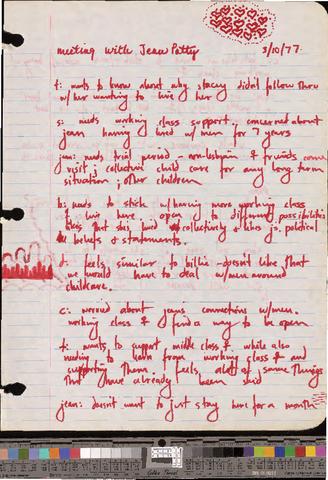 meeting with Jean Patty 3/10/77
f: needs to know about why stacey didn't follow thru
w/her wanting to live here
s: needs working class support, concerned about
jean having lived w/men for 7 years
jean: needs trial period - non-lesbian & friends come
visit; collective child care for any long term
situation; other children
b: needs to stick w/having more working class
live here. open to different possibilities
likes that she's lived collectively & likes j's political
beliefs & statements.
d: feels similar to billie - doesn't like that
we would have to deal w/men around
childcare.
c: worried about jeans connections w/men.
working class & find a way to be open
wants to support middle class while also
needing to learn from working class and
supporting them. feels alot of same things
that have already been said
jean: doesn't want to just stay here for a month